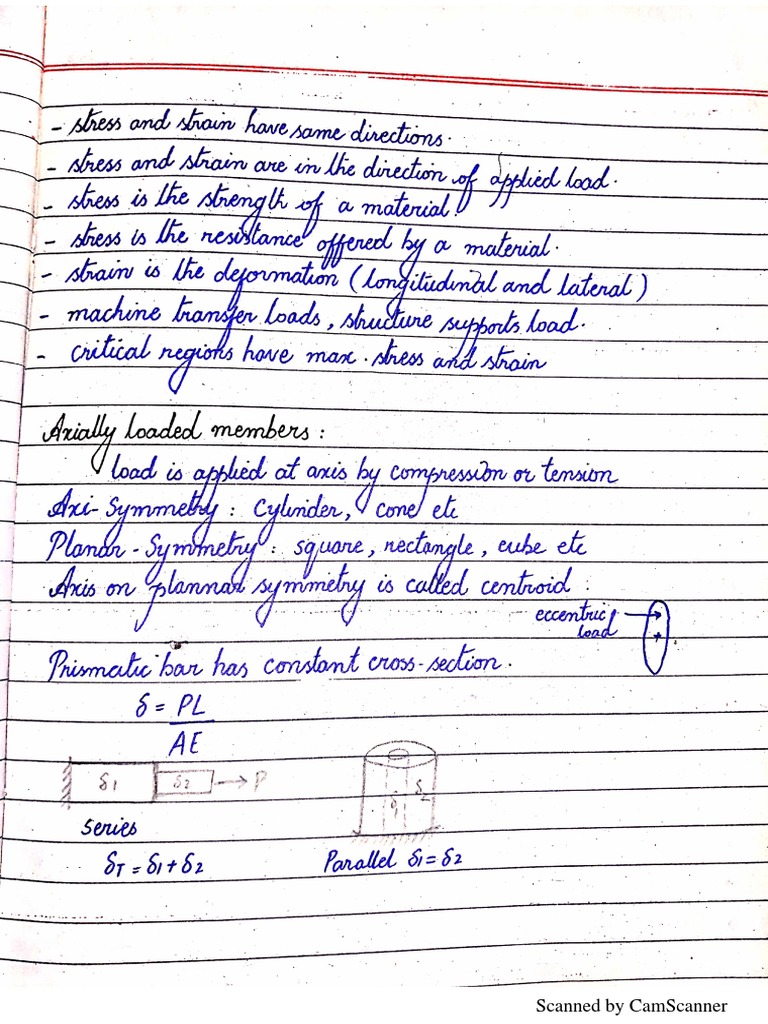 - stress and strain have same directions.
- stress and strain are in the direction of applied load.
- stress is the strength of a material
- stress is the resistance offered by a material.
- strain is the deformation (longitudinal and lateral)
- machine transfer loads, structure supports load.
- critical regions have max. stress and strain
Axially loaded members:
load is applied at axis by compression or tension
Axi-Symmetry: Cylinder, cone etc
Planar-Symmetry: square, rectangle, cube etc
Axis on plannar symmetry is called centroid.
eccentric
load
Prismatic bar has constant cross-section.
δ = PL
AE
δ1 δ2 → P
δ1 δ2
Series
δT = δ1 + δ2
Parallel δ1 = δ2
Scanned by CamScanner